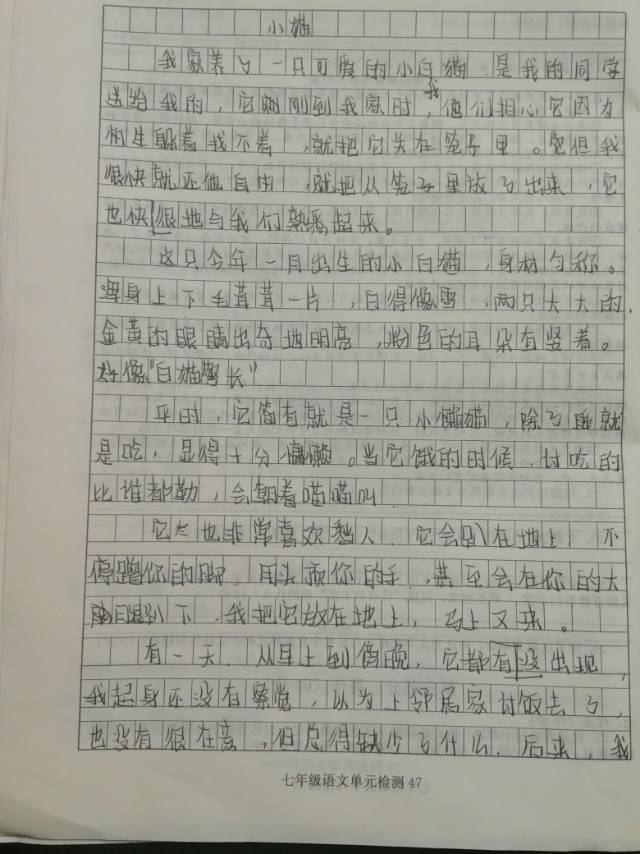 小猫
我家养了一只可爱的小白猫，是我的同学
送给我的，它刚刚到我家时，我他们担心它因为
怕生躲着找不着，就把它关在笼子里。但我
很快就还他自由，就把从笼子里放了出来，它
也快很地与我们熟悉起来。
这只今年一月出生的小白猫，身材匀称。
浑身上下毛茸茸一片，白得像雪，两只大大的，
金黄的眼睛出奇地明亮，粉色的耳朵直竖着。
好像“白猫警长”
平时，它简直就是一只小懒猫，除了睡就
是吃，显得十分慵懒。当它饿的时候，讨吃的
比谁都勤，会朝着喵喵叫
它也非常喜欢黏人，它会趴在地上，不
停蹭你的脚，用头顶你的手，甚至会在你的大
腿趴下，我把它放在地上，马上又来。
有一天，从早上到傍晚，它都有没出现，
我起身还没有察觉，以为上邻居家讨饭去了，
也没有很在意，但总得缺少了什么，后来，我
七年级语文单元检测 47